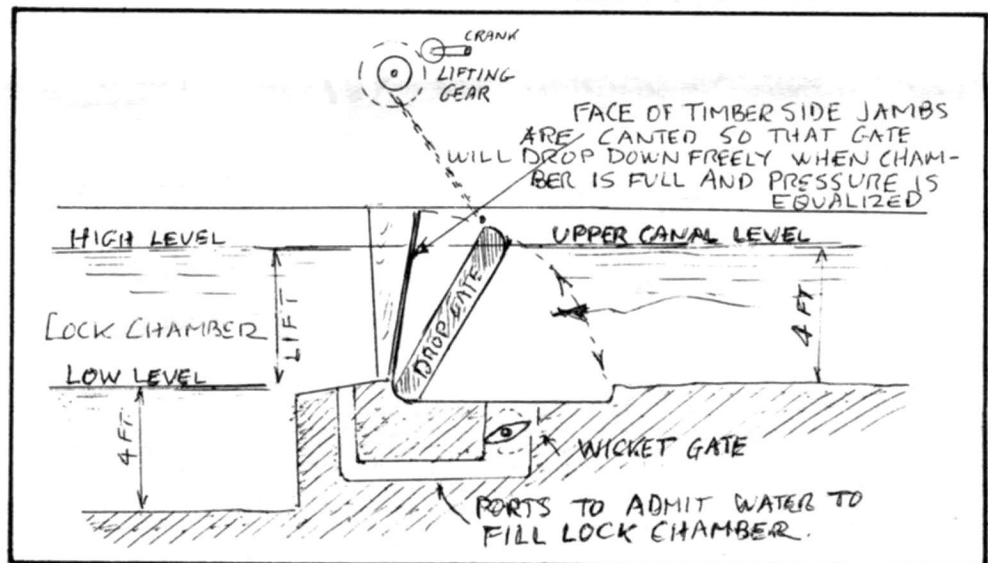 CRANK
LIFTING
GEAR
FACE OF TIMBER SIDE JAMBS
ARE CANTED SO THAT GATE
WILL DROP DOWN FREELY WHEN CHAM-
BER IS FULL AND PRESSURE IS
EQUALIZED
HIGH LEVEL
UPPER CANAL LEVEL
LIFT
DROP GATE
4 FT
LOCK CHAMBER
LOW LEVEL
4 FT
WICKET GATE
PORTS TO ADMIT WATER TO
FILL LOCK CHAMBER.